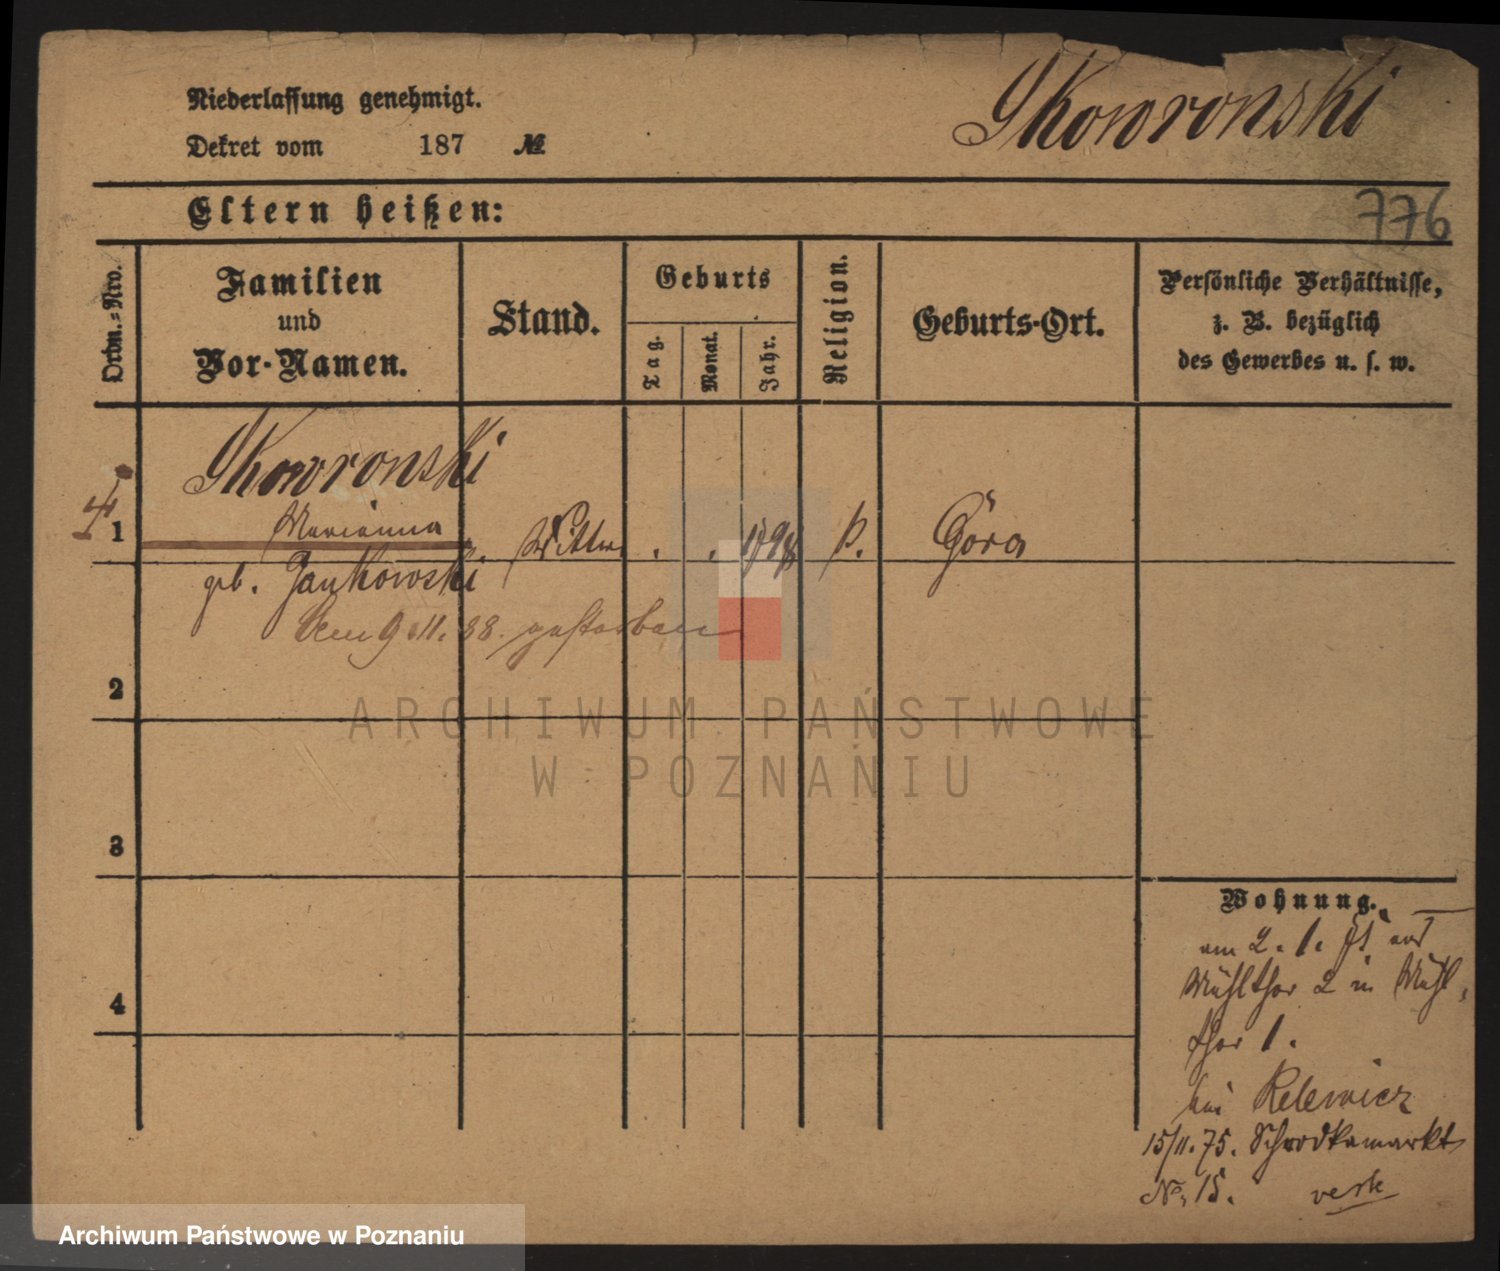 Skowronski
Niederlassung genehmigt.
Dekret vom 187 №
776
Eltern heißen:
Ordn.-Nro.
Familien
und
Vor-Namen.
Stand.
Geburts
Tag.
Monat.
Jahr.
Religion.
Geburts-Ort.
Persönliche Verhältnisse,
z. B. bezüglich
des Gewerbes u. s. w.
Skowronski
1 Marianna Wittwe Góra
geb. Jankowski
9.11.88. gestorben
2
3
4
Wohnung.
am 2. 1. aus
Mühlthor 2 in Mühl
thor 1.
bei Relewicz
15/11.75. Schrodkamarkt
No. 15.
ARCHIWUM PAŃSTWOWE
W POZNANIU
Archiwum Państwowe w Poznaniu